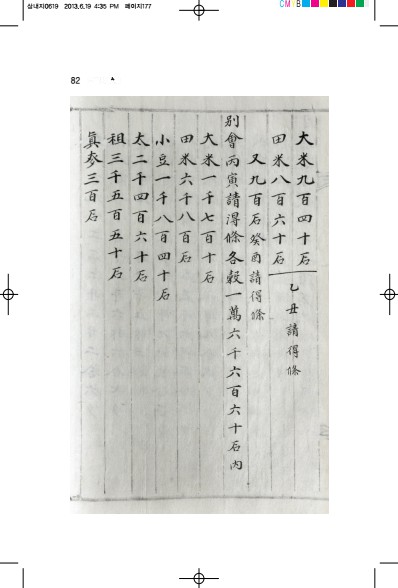 삼내지0619 2013.6.19 4:35 PM 페이지177
CM
82
大米九百四十石
田米八百六十石
乙丑請得條
又九百石癸酉請得條
別會丙寅請得條各穀一萬六千六百六十石內
大米一千七百十石
田米六千八百石
小豆一千八百四十石
太二千四百六十石
租三千五百五十石
眞麥三百石